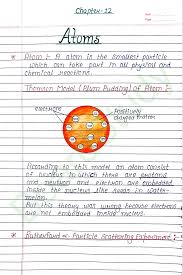 Chapter-12
Atoms
* Atom :- A atom is the smallest particle
which can take part in all physical and
chemical reactions.
Thomson Model (Plum Pudding) of Atom :-
electrons
Positively
charged matter
According to this model an atom consist
of nucleus in which there are protons
and neutron and electron are embedded
inside the nucleus like seeds in water-
melon.
But this theory was wrong because electrons
are not embedded inside nucleus.
* Rutherford α-Particle Scattering Experiment :-